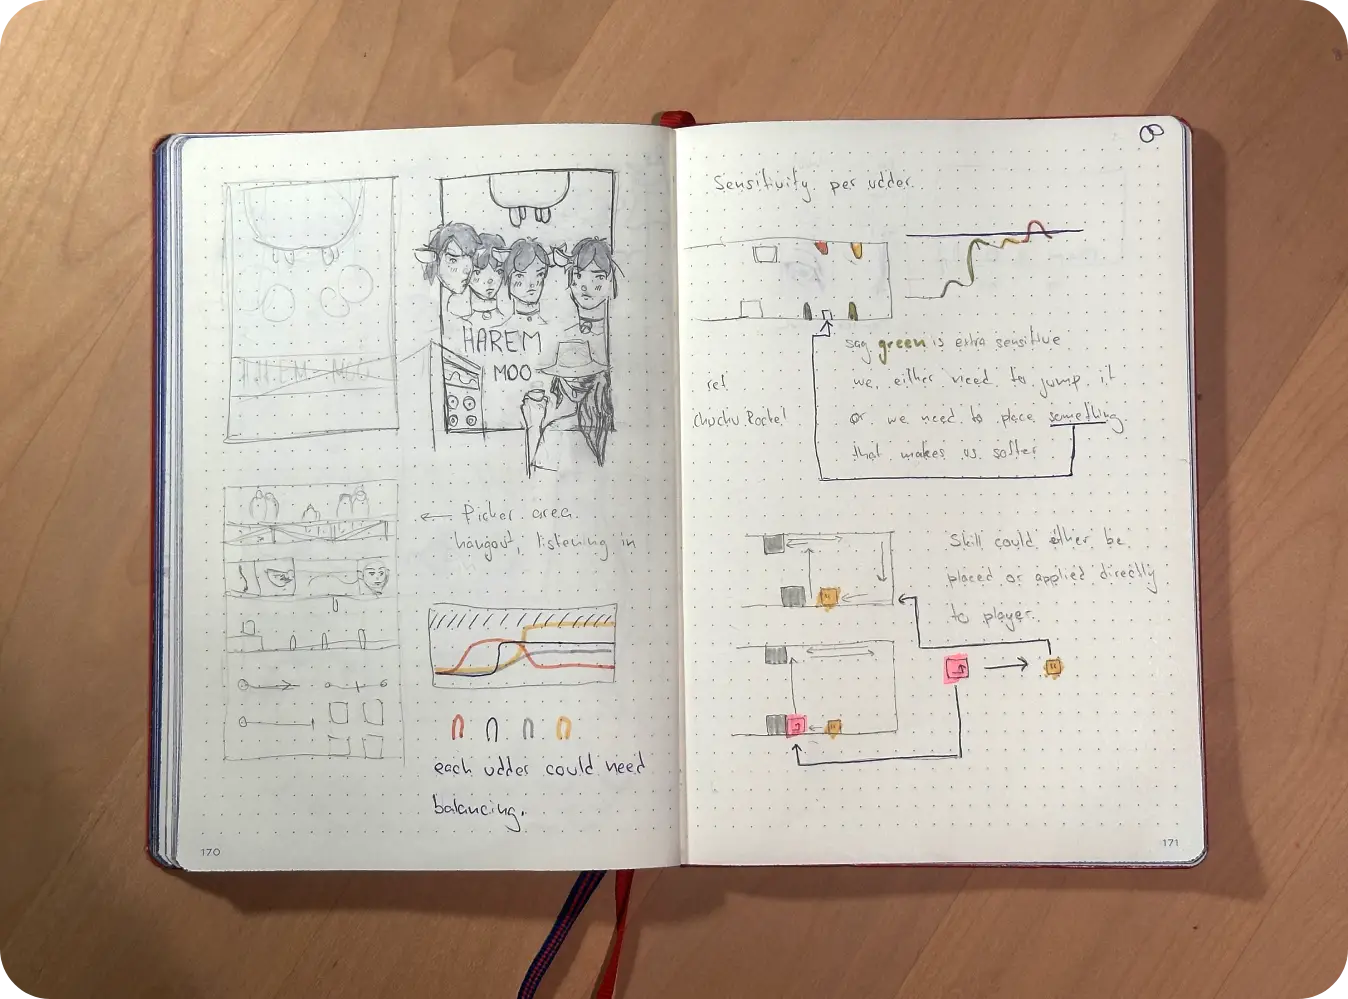 HAREM
MOO
← Picker area.
hangout, listening in
each udder could need
balancing.
170
8
Sensitivity per udder.
say green is extra sensitive
we either need to jump it
or we need to place something
that makes us softer
ref
Chuchu Rocket
Skill could either be
placed or applied directly
to player.
171